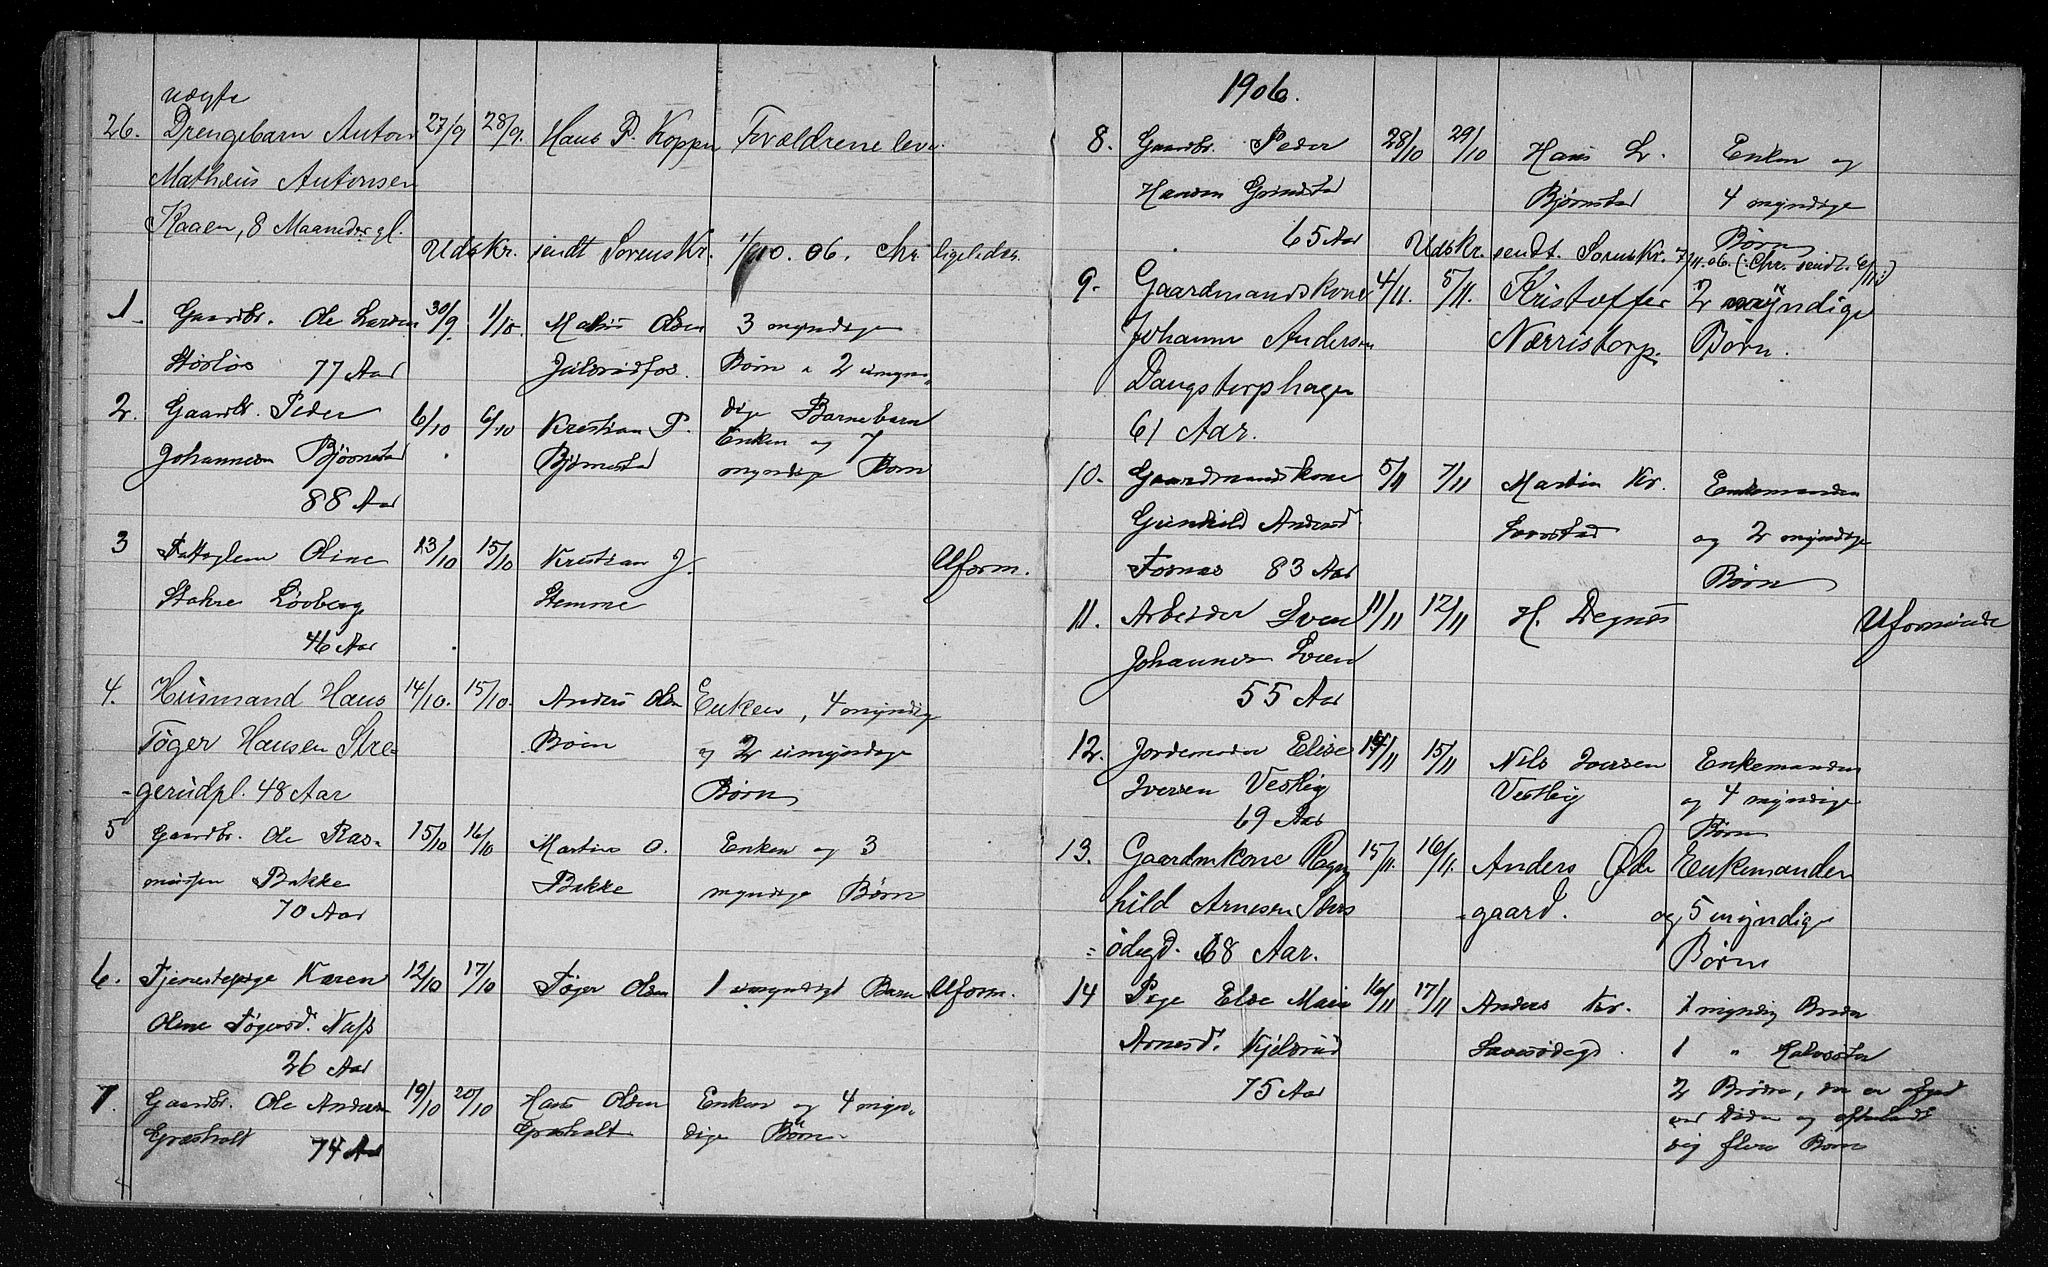 uægte
26. Drengebarn Anton 27/9 28/9. Hans P. Koppen Forældrene leve.
Mathæus Antonsen
Kaaen, 8 Maaneder gl.
Udskr. sendt Sorenskr. 1/10. 06. Chr. ligeledes.
1. Gaardbr. Ole Larsen 30/9. 1/10. Olsen 3 myndige
77 Aar Julsrudfos. Børn 2 umyn-
2. Gaardbr. Peder 6/10 6/10 Kristian P. dige Barnebarn
Johannesen Bjørnstad Bjørnestad Enken og 7
88 Aar myndige Børn
3 Oline 13/10 15/10 Kristian J. Uform.
Løvberg Stemme
46 Aar
4. Husmand Hans 14/10. 15/10. Anders Olsen Enken, 4 myndige
Tøger Hansen Stre- Børn og 2 umyndige
gerudpl. 48 Aar Børn
5 Gaardbr. Ole Ras- 15/10 16/10 Martin O. Enken og 3
mussen Bakke Bakke myndige Børn
70 Aar
6. Tjenestepige Karen 12/10 17/10 Tøger Olsen 1 umyndigt Barn Uform.
Oline Tøgersd. Næss
26 Aar
7. Gaardbr. Ole Andersen 19/10 20/10 Hans Olsen Enken og 4 myn-
Græsholt 74 Aar Græsholt dige Børn
1906.
8. Gaardbr. Peder 28/10 29/10 Hans L. Enken og
Hansen Grindstad Bjørnstad 4 myndige
65 Aar Børn
Udskr. sendt. Sorenskr. 7/11. 06. (Chr. sendt. 6/11.)
9. Gaardmandskone 4/11. 5/11. Kristoffer 2 myndige
Johanne Andersen Nærristorp. Børn.
Dangstorphagen
61 Aar.
10. Gaardmandskone 5/11 7/11 Martin Kr. Enkemanden
Gunhild Andersd. og 2 myndige
Fornes 83 Aar Børn
11. Arbeider Sven 11/11 12/11 H. Degnes Uformuende
Johannesen Sveen
55 Aar
12. Jordemoder Elise 14/11 15/11 Nils Iversen Enkemanden
Iversen Vestby Vestby og 4 myndige
69 Aar Børn
13. Gaardmkone Ragn 15/11. 16/11. Anders Øde Enkemanden
hild Arnesen Sørs -gaard. og 5 myndige
=ødegd. 68 Aar. Børn
14 Pige Else Marie 16/11 17/11 Anders Kr. 1 myndig Broder
Arnesd. Kjelsrud 1 " Halvsøster
75 Aar 2 Brødre, der er afgaaet
ved Døden og efterladt
sig flere Børn